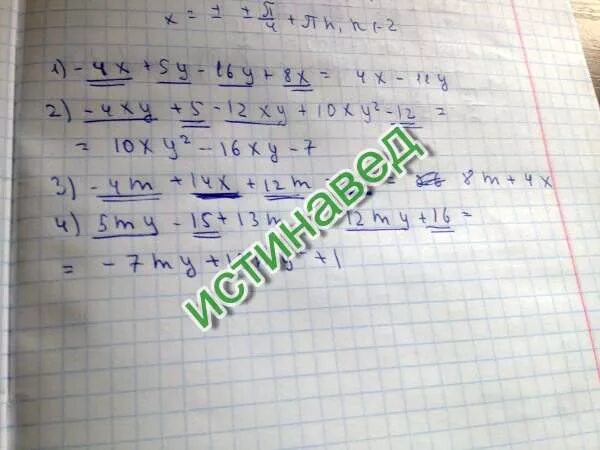 x = ± ± π/4 + πn, n
1) -4x + 5y - 16y + 8x = 4x - 11y
2) -4xy + 5 - 12xy + 10xy² - 12 =
= 10xy² - 16xy - 7
3) -4m + 14x + 12m - = 8m + 4x
4) 5my - 15 + 13m 12my + 16 =
= -7my + 1 + 1
истинавед